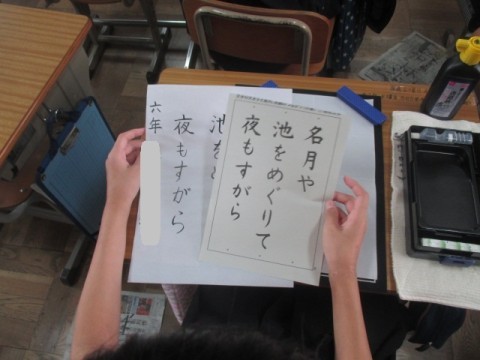 名月や
池をめぐりて
夜もすがら
池を
夜もすがら
六年